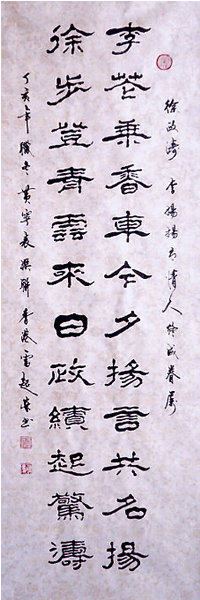 徐政濤 李揚揚 有情人終成眷屬
李花乘香車今夕揚言共名揚
徐步登青雲來日政績起驚濤
丁亥年臘冬黃寧撰聯 香港雷超書